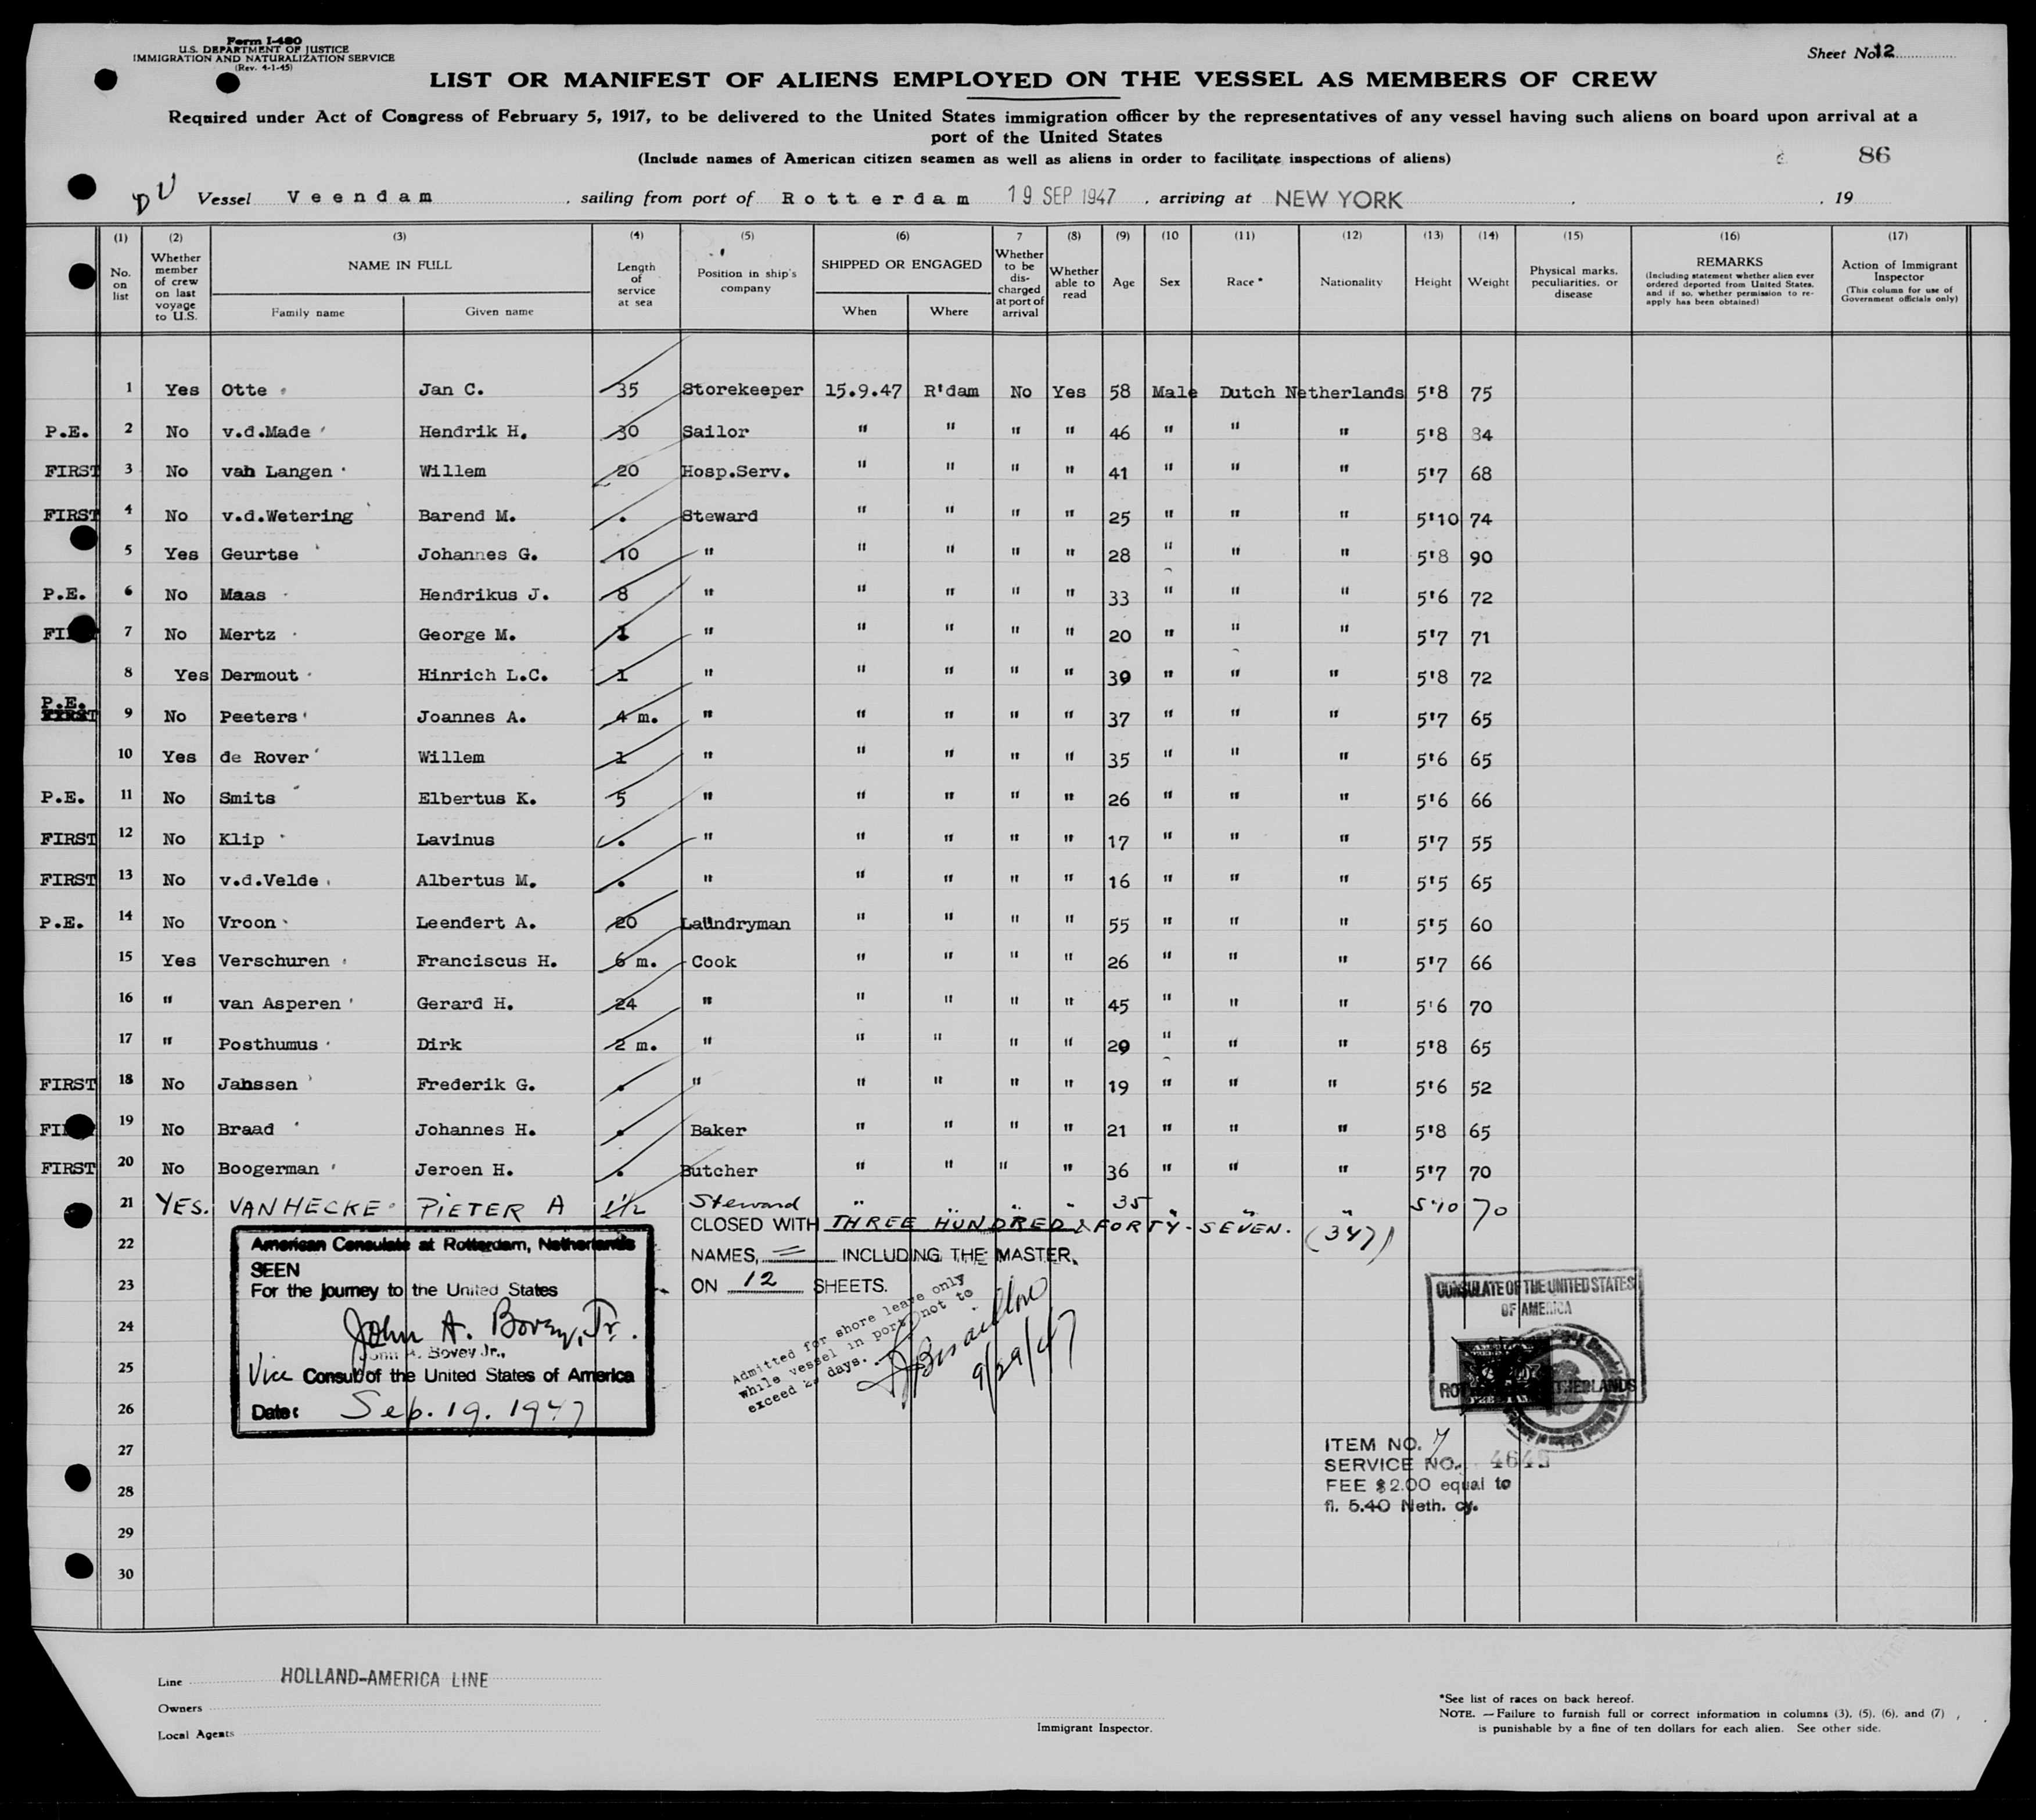 Form I-480
U.S. DEPARTMENT OF JUSTICE
IMMIGRATION AND NATURALIZATION SERVICE
(Rev. 4-1-45)
Sheet No. 12
LIST OR MANIFEST OF ALIENS EMPLOYED ON THE VESSEL AS MEMBERS OF CREW
Required under Act of Congress of February 5, 1917, to be delivered to the United States immigration officer by the representatives of any vessel having such aliens on board upon arrival at a
port of the United States
(Include names of American citizen seamen as well as aliens in order to facilitate inspections of aliens)
86
Vessel Veendam , sailing from port of Rotterdam 19 SEP 1947 , arriving at NEW YORK , 19
(1) (2) (3) (4) (5) (6) 7 (8) (9) (10 (11) (12) (13) (14) (15) (16) (17)
No. on list
Whether member of crew on last voyage to U.S.
NAME IN FULL
Family name Given name
Length of service at sea
Position in ship's company
SHIPPED OR ENGAGED
When Where
Whether to be discharged at port of arrival
Whether able to read
Age
Sex
Race *
Nationality
Height
Weight
Physical marks, peculiarities, or disease
REMARKS
(Including statement whether alien ever ordered deported from United States, and if so, whether permission to re-apply has been obtained)
Action of Immigrant Inspector
(This column for use of Government officials only)
1 Yes Otte Jan C. 35 Storekeeper 15.9.47 R'dam No Yes 58 Male Dutch Netherlands 5'8 75
P.E. 2 No v.d.Made Hendrik H. 30 Sailor " " " " 46 " " " 5'8 84
FIRST 3 No van Langen Willem 20 Hosp.Serv. " " " " 41 " " " 5'7 68
FIRST 4 No v.d.Wetering Barend M. . Steward " " " " 25 " " " 5'10 74
5 Yes Geurtse Johannes G. 10 " " " " " 28 " " " 5'8 90
P.E. 6 No Maas Hendrikus J. 8 " " " " " 33 " " " 5'6 72
7 No Mertz George M. 1 " " " " " 20 " " " 5'7 71
8 Yes Dermout Hinrich L.C. 1 " " " " " 39 " " " 5'8 72
P.E. FIRST 9 No Peeters Joannes A. 4 m. " " " " " 37 " " " 5'7 65
10 Yes de Rover Willem 1 " " " " " 35 " " " 5'6 65
P.E. 11 No Smits Elbertus K. 5 " " " " " 26 " " " 5'6 66
FIRST 12 No Klip Lavinus . " " " " " 17 " " " 5'7 55
FIRST 13 No v.d.Velde Albertus M. . " " " " " 16 " " " 5'5 65
P.E. 14 No Vroon Leendert A. 20 Laundryman " " " " 55 " " " 5'5 60
15 Yes Verschuren Franciscus H. 6 m. Cook " " " " 26 " " " 5'7 66
16 " van Asperen Gerard H. 24 " " " " " 45 " " " 5'6 70
17 " Posthumus Dirk 2 m. " " " " " 29 " " " 5'8 65
FIRST 18 No Janssen Frederik G. . " " " " " 19 " " " 5'6 52
19 No Braad Johannes H. . Baker " " " " 21 " " " 5'8 65
FIRST 20 No Boogerman Jeroen H. . Butcher " " " " 36 " " " 5'7 70
21 YES. VAN HECKE PIETER A 1½ Steward " " " 35 " " " 5'10 70
CLOSED WITH THREE HUNDRED & FORTY-SEVEN. (347)
22 NAMES, = INCLUDING THE MASTER.
23 ON 12 SHEETS.
24
25
26
27
28
29
30
American Consulate at Rotterdam, Netherlands
SEEN
For the journey to the United States
John A. Bovey, Jr.
John A. Bovey Jr.,
Vice Consul of the United States of America
Date: Sep. 19. 1947
Admitted for shore leave only
while vessel in port not to
exceed days.
9/29/47
CONSULATE OF THE UNITED STATES
OF AMERICA
ITEM NO. 7
SERVICE NO. 4645
FEE $2.00 equal to
fl. 5.40 Neth. cy.
Line HOLLAND-AMERICA LINE
Owners
Local Agents
Immigrant Inspector.
*See list of races on back hereof.
NOTE. —Failure to furnish full or correct information in columns (3), (5), (6), and (7)
is punishable by a fine of ten dollars for each alien. See other side.